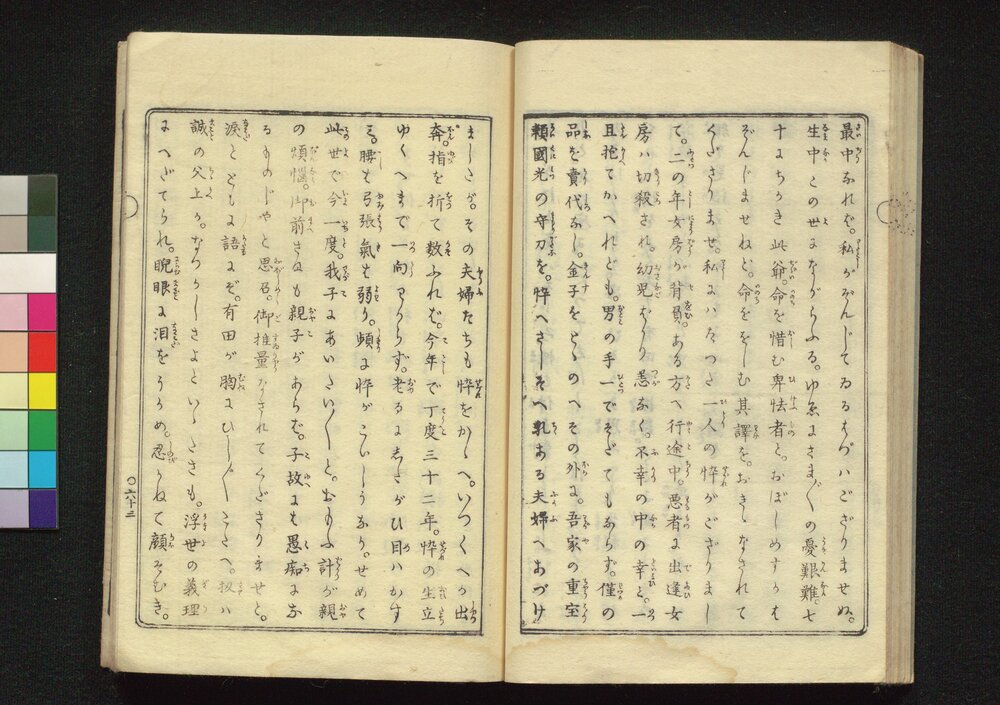 最中なれば。私がぞんじてゐるはづハござりませぬ。
生中この世にながらふる。ゆゑにさま／″＼の憂艱難。七
十にちかき此爺。命を惜む卑怯者と。おぼしめすかも
ぞんじませねど。命ををしむ其譯を。おきゝなされて
くださりませ。私にハたつた一人の悴がござりまし
て。二の年女房が背負。ある方へ行途中。悪者に出逢女
房ハ切殺され。幼児ばかり恙なく。不幸の中の幸と。一
旦抱てかへれども。男の手一でそだてもならず。僅の
品を賣代なし。金子をとゝのへその外に。吾家の重宝
頼國光の守刀を。悴へさしそへ乳ある夫婦へあづけ
ましたが。その夫婦たちも悴をかゝへ。いづくへか出
奔。指を折て数ふれば。今年で丁度三十二年。悴の生立
ゆくへまで一向わからず。老るにしたがひ目ハかす
み。腰も弓張氣も弱り。頻に悴がこひしうなり。せめて
此世で今一度。我子にあいたい／＼と。おもふ計が親
の煩惱。御前さまも親子があらば。子故にも愚痴にな
るものじやと思召。御推量なされてくださりませと。
涙とともに語にぞ。有田が胸にひし／＼とこたへ。扨ハ
誠の父上か。なつかしさよといひたさも。浮世の義理
にへだてられ。睨眼に泪をうかめ。忍かねて顔そむき。
〇六十三